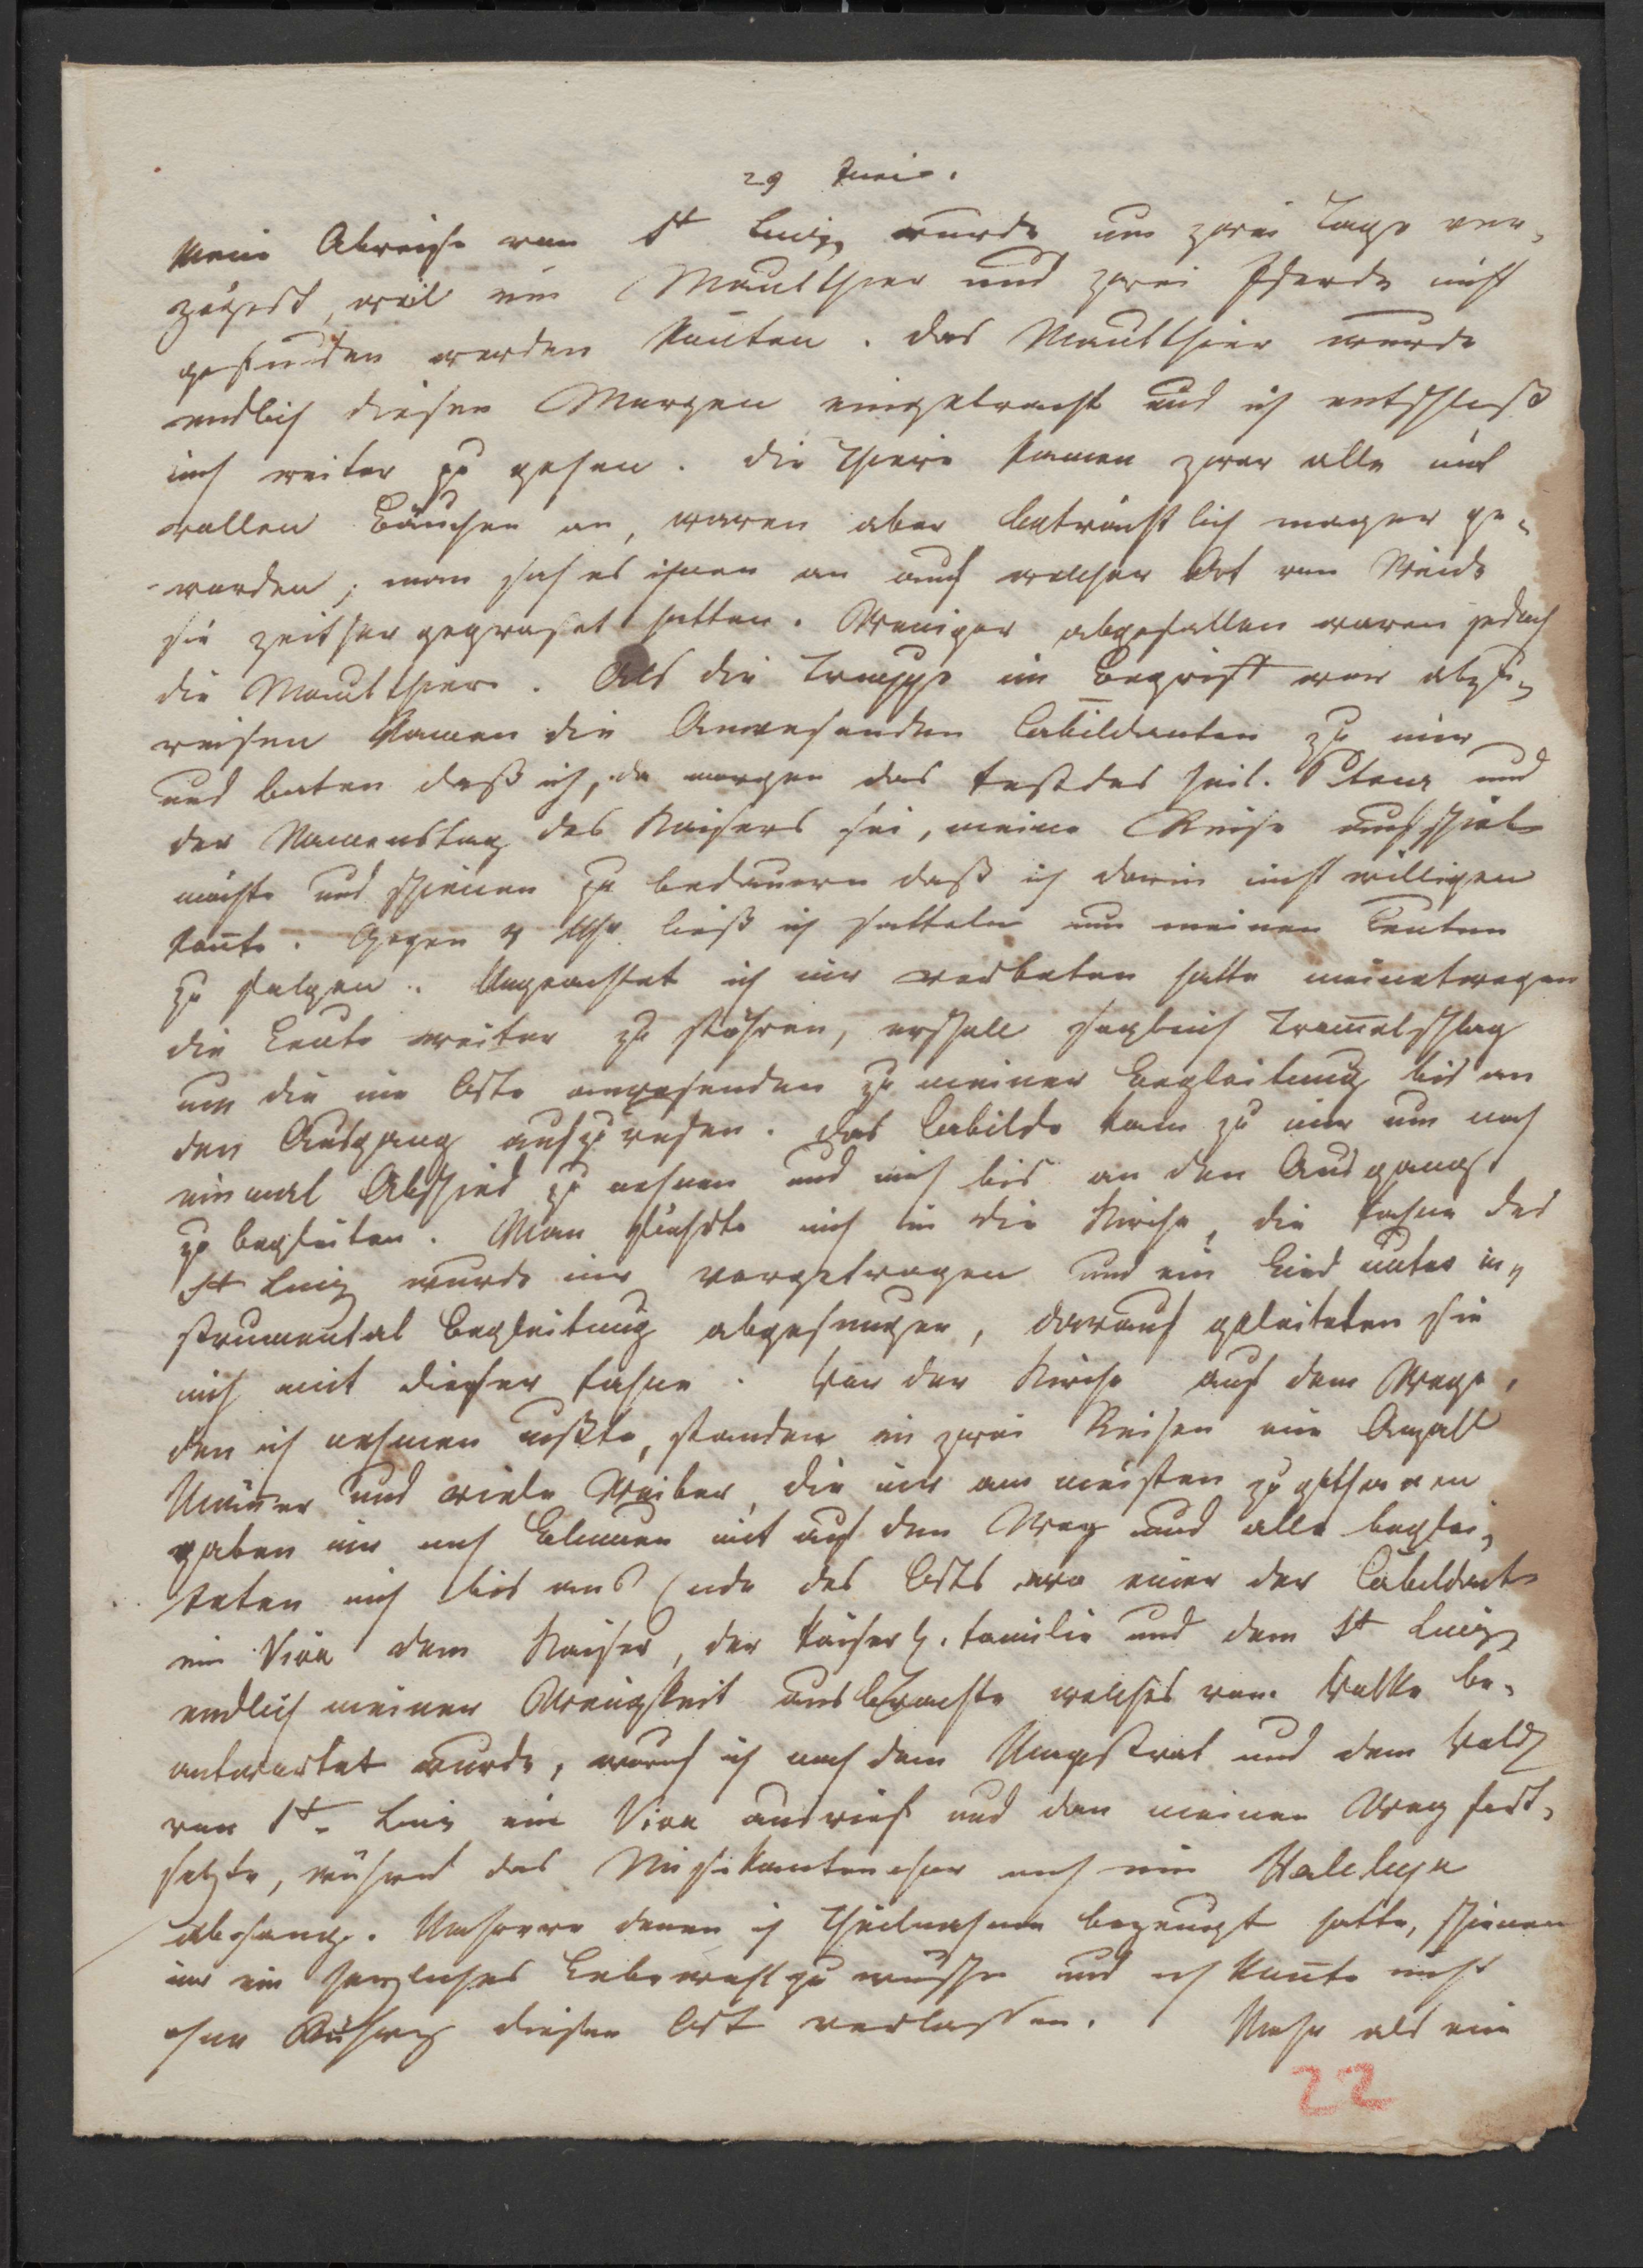 29 Juni.
Meine Abreise von St Luiz wurde um zwei Tage ver¬
zögert, weil ein Maulthier und zwei Pferde nicht
gefunden werden konten. Das Maulthier wurde
endlich diesen Morgen eingebracht und ich entschloß
mich weiter zu gehen. Die Thiere kamen zwar alle mit
vollen Bäuchen an, waren aber beträchtlich mager ge¬
worden; man sah es ihnen an auf welcher Art von Weide
sie zeither gegraset hatten. Weniger abgefallen waren jedoch
die Maulthiere. Als die Truppe im Begriff war abzu¬
reisen kamen die Anwesenden Cabildanten zu mir
und baten daß ich, da morgen das Fest des heil. Peters und
der Namenstag des Kaisers sei, meine Reise aufschieben
möchte und schienen zu bedauern daß ich darin nicht willigen
konte. Gegen Uhr ließ ich satteln um meinen Leuten
zu folgen. Ungeachtet ich mir verbeten hatte meinetwegen
die Leute weiter zu stöhren, erscholl sogleich Tromelschlag
um die im Orte anwesenden zu meiner Begleitung bis an
den Ausgang aufzurufen. Das Cabildo kam zu mir um noch
einmal Abschied zu nehmen und mich bis an den Ausgang
zu begleiten. Man führte mich in die Kirche, die Fahne des
St Luiz wurde mir vorgetragen und ein Lied unter in¬
strumental Begleitung abgesungen, darauf geleiteten sie
mich mit dieser Fahne. Vor der Kirche auf dem Wege,
den ich nehmen mußte, standen in zwei Reihen eine Anzahl
Männer und viele Weiber, die mir am meisten zugethanen
gaben mir noch Blumen mit auf den Weg und alle beglei¬
teten mich bis ans Ende des Orts wo einer der Cabildanten
ein Viva dem Kaiser, der Kaiserl. Familie und dem St Luiz
endlich meiner Wenigkeit ausbrachte welches vom Volke be¬
antwortet wurde, worauf ich noch dem Magistrat und dem Volk
von St. Luiz ein Viva ausrief und dan meinen Weg fort¬
setzte, während das Musikantenchor noch ein Haleluja
absang. Mehrere denen ich Theilnahme bezeugt hatte, schienen
mir ein herzliches Lebewohl zu wünschen und ich konte nicht
ohne Rührung diesen Ort verlassen. Mehr als ein
22